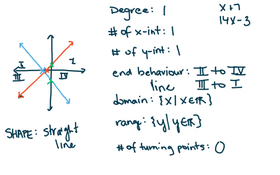 Degree: 1
x+7
14x-3
# of x-int: 1
# of y-int: 1
end behaviour: II to IV
line III to I
domain: {x|x∈ℝ}
range: {y|y∈ℝ}
# of turning points: 0
II
I
III
IV
SHAPE: straight
line